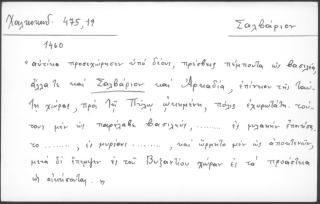 Χαλκοκονδ. 475,19
Σαλβάριον
1460
"αὐτίκα προσεχώρησεν ὑπὸ δέους, πρέσβεις πέμποντα ὡς βασιλέα,
ἄλλα τε καὶ Σαλβάριον καὶ Ἀρκαδία, ἐπίνειον τῆς ταύ-
τῃ χώρας, πρὸς τῇ Πύλῳ ᾠκισμένη, πόλις ἐχυρωτάτη. τού-
τους μὲν ὡς παρέλαβε βασιλεύς, ........ ἐς φυλακὴν ἐποιήσα-
το ........, ἐς μυρίους ........, καὶ ὥρμητο μὲν ὡς ἀποκτενῶν,
μετὰ δὲ ἔπεμψεν ἐς τοῦ Βυζαντίου χώραν ἐς τὰ προάστεια
ὡς οἰκήσοντας."